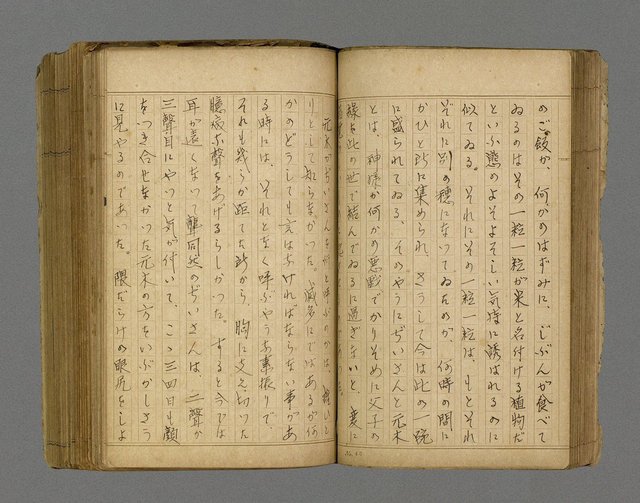 のご飯が、何かのはずみに、じぶんが食べて
ゐるのはその一粒一粒が米と名付ける植物だ
といふ態のよそよそしい気持に誘はれるのに
似てゐる。それにその一粒一粒は、もとそれ
ぞれに別の穂になつてゐたのが、何時の間に
かひと所に集められ、さうして今は此の一碗
に盛られてゐる、そのやうにぢいさんと元木
とは、神様が何かの悪戯でかりそめに父子の
縁を此の世で結んでゐるに過ぎないと、変に
りとして知らなかつた。滅多にではあるが何
かのどうしても言はなければならない事があ
る時には、それとなく呼ぶやうな素振りで、
それも幾らか距てた所から、胸に支え切つた
臆病な聲をあげるらしかつた。すると今では
耳が遠くなつて聾同然のぢいさんは、二聲か
三聲目にやつと気が付いて、こゝ三四日も顔
をつき合せなかつた元木の方をいぶかしさう
に見やるのであつた。眼だらけの眼尻をしよ
No. 40